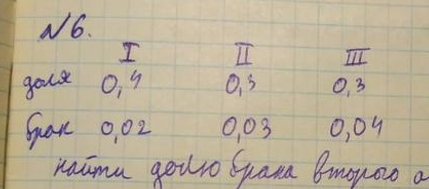 №6.
I II III
доля 0,4 0,3 0,3
брак 0,02 0,03 0,04
найти долю брака второго